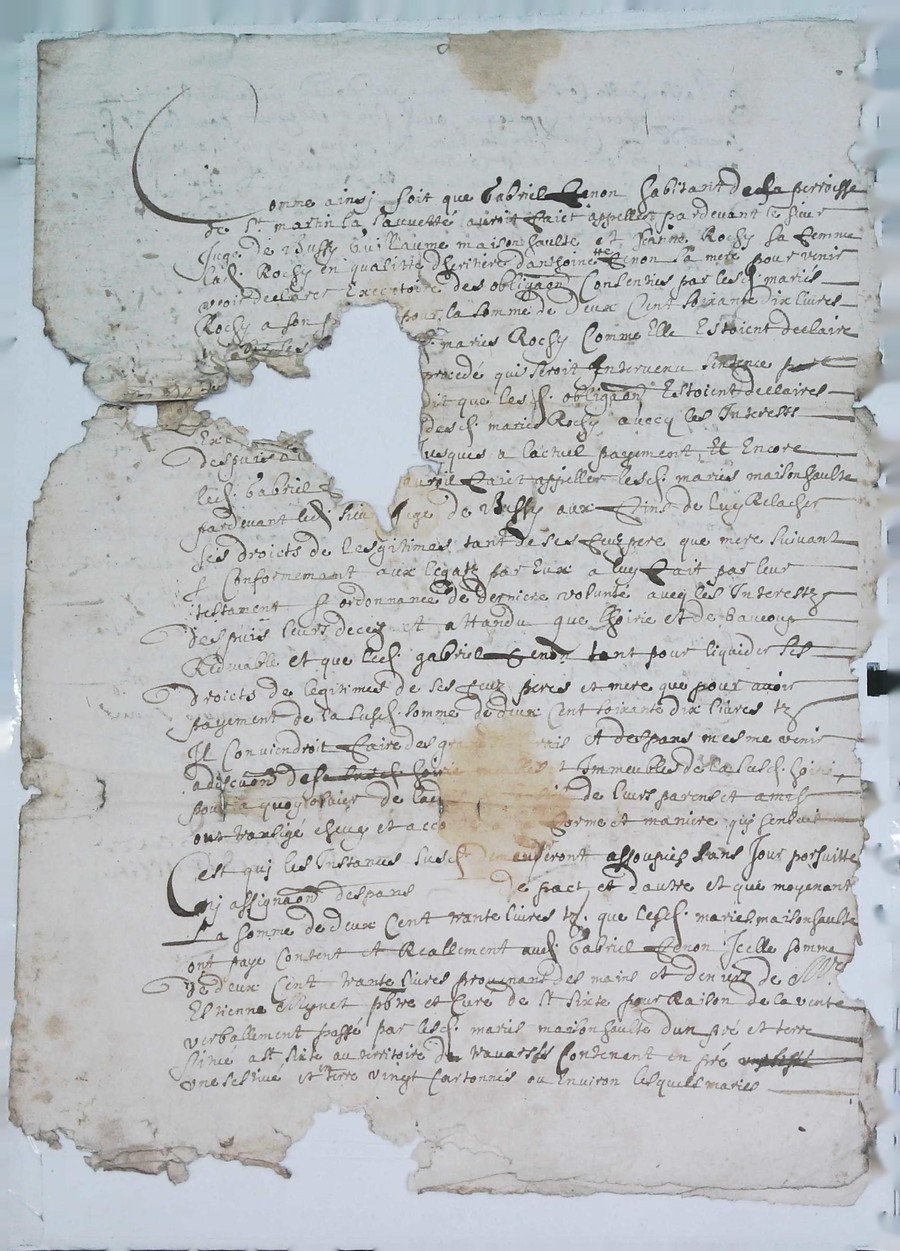 Comme ainsj soit que Gabriel Genon habitant de la perroisse
de St martin la sauvetté auroit faict appeller pardevant le sieur
Juge de Bussy Guillaume maisonhaulte et Jeanne Rochy sa femme
lad. Rochy en qualitté d'heritiere danthoinette Genon sa mere pour venir
veoir declarer Executoire des obligaon Consenties par lesd. maries
Rochy a son pour la somme de Deux Cent soixante dix livres
maries Rochy Comme Elle Estoient declaire
procedé qui seroit Intervenu sentence
dit que les d. obligaon Estoient declaires
desd. maries Rochy avecq les Interests
despuis jusques a lactuel payement Et Encore
led. Gabriel auroit faict appeller lesd. maries maisonhaulte
pardevant led. sieur Juge de Bussy aux fins de luy Relacher
ses droicts de Lesgitimes tant de ses feuz pere que mere suivant
et Conformemant aux legatz par Eux a luy fait par leur
testament et ordonnance de derniere volunté aveq les Interestz
despuis leurs decez et attandu que lhoirie est de beaucoup
Redevable et que led. gabriel Genon tant pour liquider ses
droicts de legitimes de ses feuz peres et mere que pour avoir
payement de la susd. somme de deux Cent soixante dix livres tz
Il Conviendroit faire des grands frais et despans mesme venir
a discuon de la susd. hoirie meubles et Immeubles de la susd. hoirie
pour a quoy obvier de ladvis de leurs parens et amis
ont transigé chevy et acco forme et maniere quj sensuit
Cest quj les Instances susd. demeureront assoupies sans Jour porsuitte
nj assignaon despans de part et dautre et que moyenant
La somme de deux Cent trante livres tz. que lesd. maries maisonhaulte
ont paye Content et Reallement aud. Gabriel Genon Icelle somme
de deux Cent trante livres provenant des mains et deniers de Mre
Estienne pbre et Curé de St Sixte pour Raison de la vente
verballement passé par lesd. maries maisonhaulte dun pré et terre
sitüé a St Sixte au territoire de Contenent en pré
une et en terre vingt Cartonnes ou Environ lesquels maries